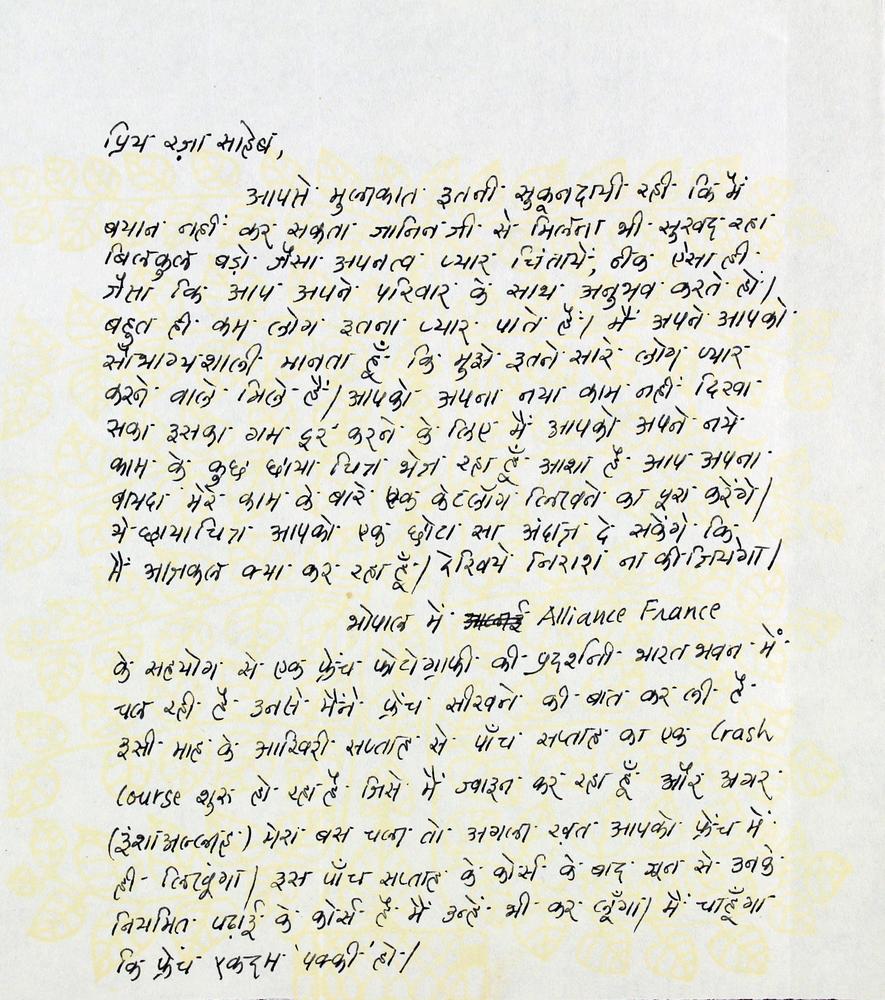 प्रिय रज़ा साहेब,
आपसे मुलाकात इतनी सुकूनदायी रही कि मैं
बयान नहीं कर सकता जानिन जी से मिलना भी सुखद रहा
बिलकुल बड़ो जैसा अपनत्व प्यार चिंतायें, ठीक ऐसा ही
जैसा कि आप अपने परिवार के साथ अनुभव करते हों।
बहुत ही कम लोग इतना प्यार पाते हैं। मैं अपने आपको
सौभाग्यशाली मानता हूँ कि मुझे इतने सारे लोग प्यार
करने वाले मिले हैं। आपको अपना नया काम नहीं दिखा
सका इसका गम दूर करने के लिए मैं आपको अपने नये
काम के कुछ छाया चित्र भेज रहा हूँ आशा है आप अपना
वायदा मेरे काम के बारे एक केटलॉग लिखने का पूरा करेंगे।
ये छायाचित्र आपको एक छोटा सा अंदाज़ दे सकेंगे कि
मैं आजकल क्या कर रहा हूँ। देखिये निराश ना कीजियेगा।
भोपाल में Alliance France
के सहयोग से एक फ़्रेंच फोटोग्राफी की प्रदर्शनी भारत भवन में
चल रही है उनसे मैंने फ़्रेंच सीखने की बात कर ली है
इसी माह के आखिरी सप्ताह से पाँच सप्ताह का एक Crash
Course शुरू हो रहा है जिसे मैं ज्वाइन कर रहा हूँ और अगर
(इंशाअल्लाह) मेरा बस चला तो अगला ख़त आपको फ़्रेंच में
ही लिखूंगा। इस पाँच सप्ताह के कोर्स के बाद जून से उनके
नियमित पढ़ाई के कोर्स है मैं उन्हें भी कर लूँगा। मैं चाहूँगा
कि फ़्रेंच एकदम 'पक्की' हो।